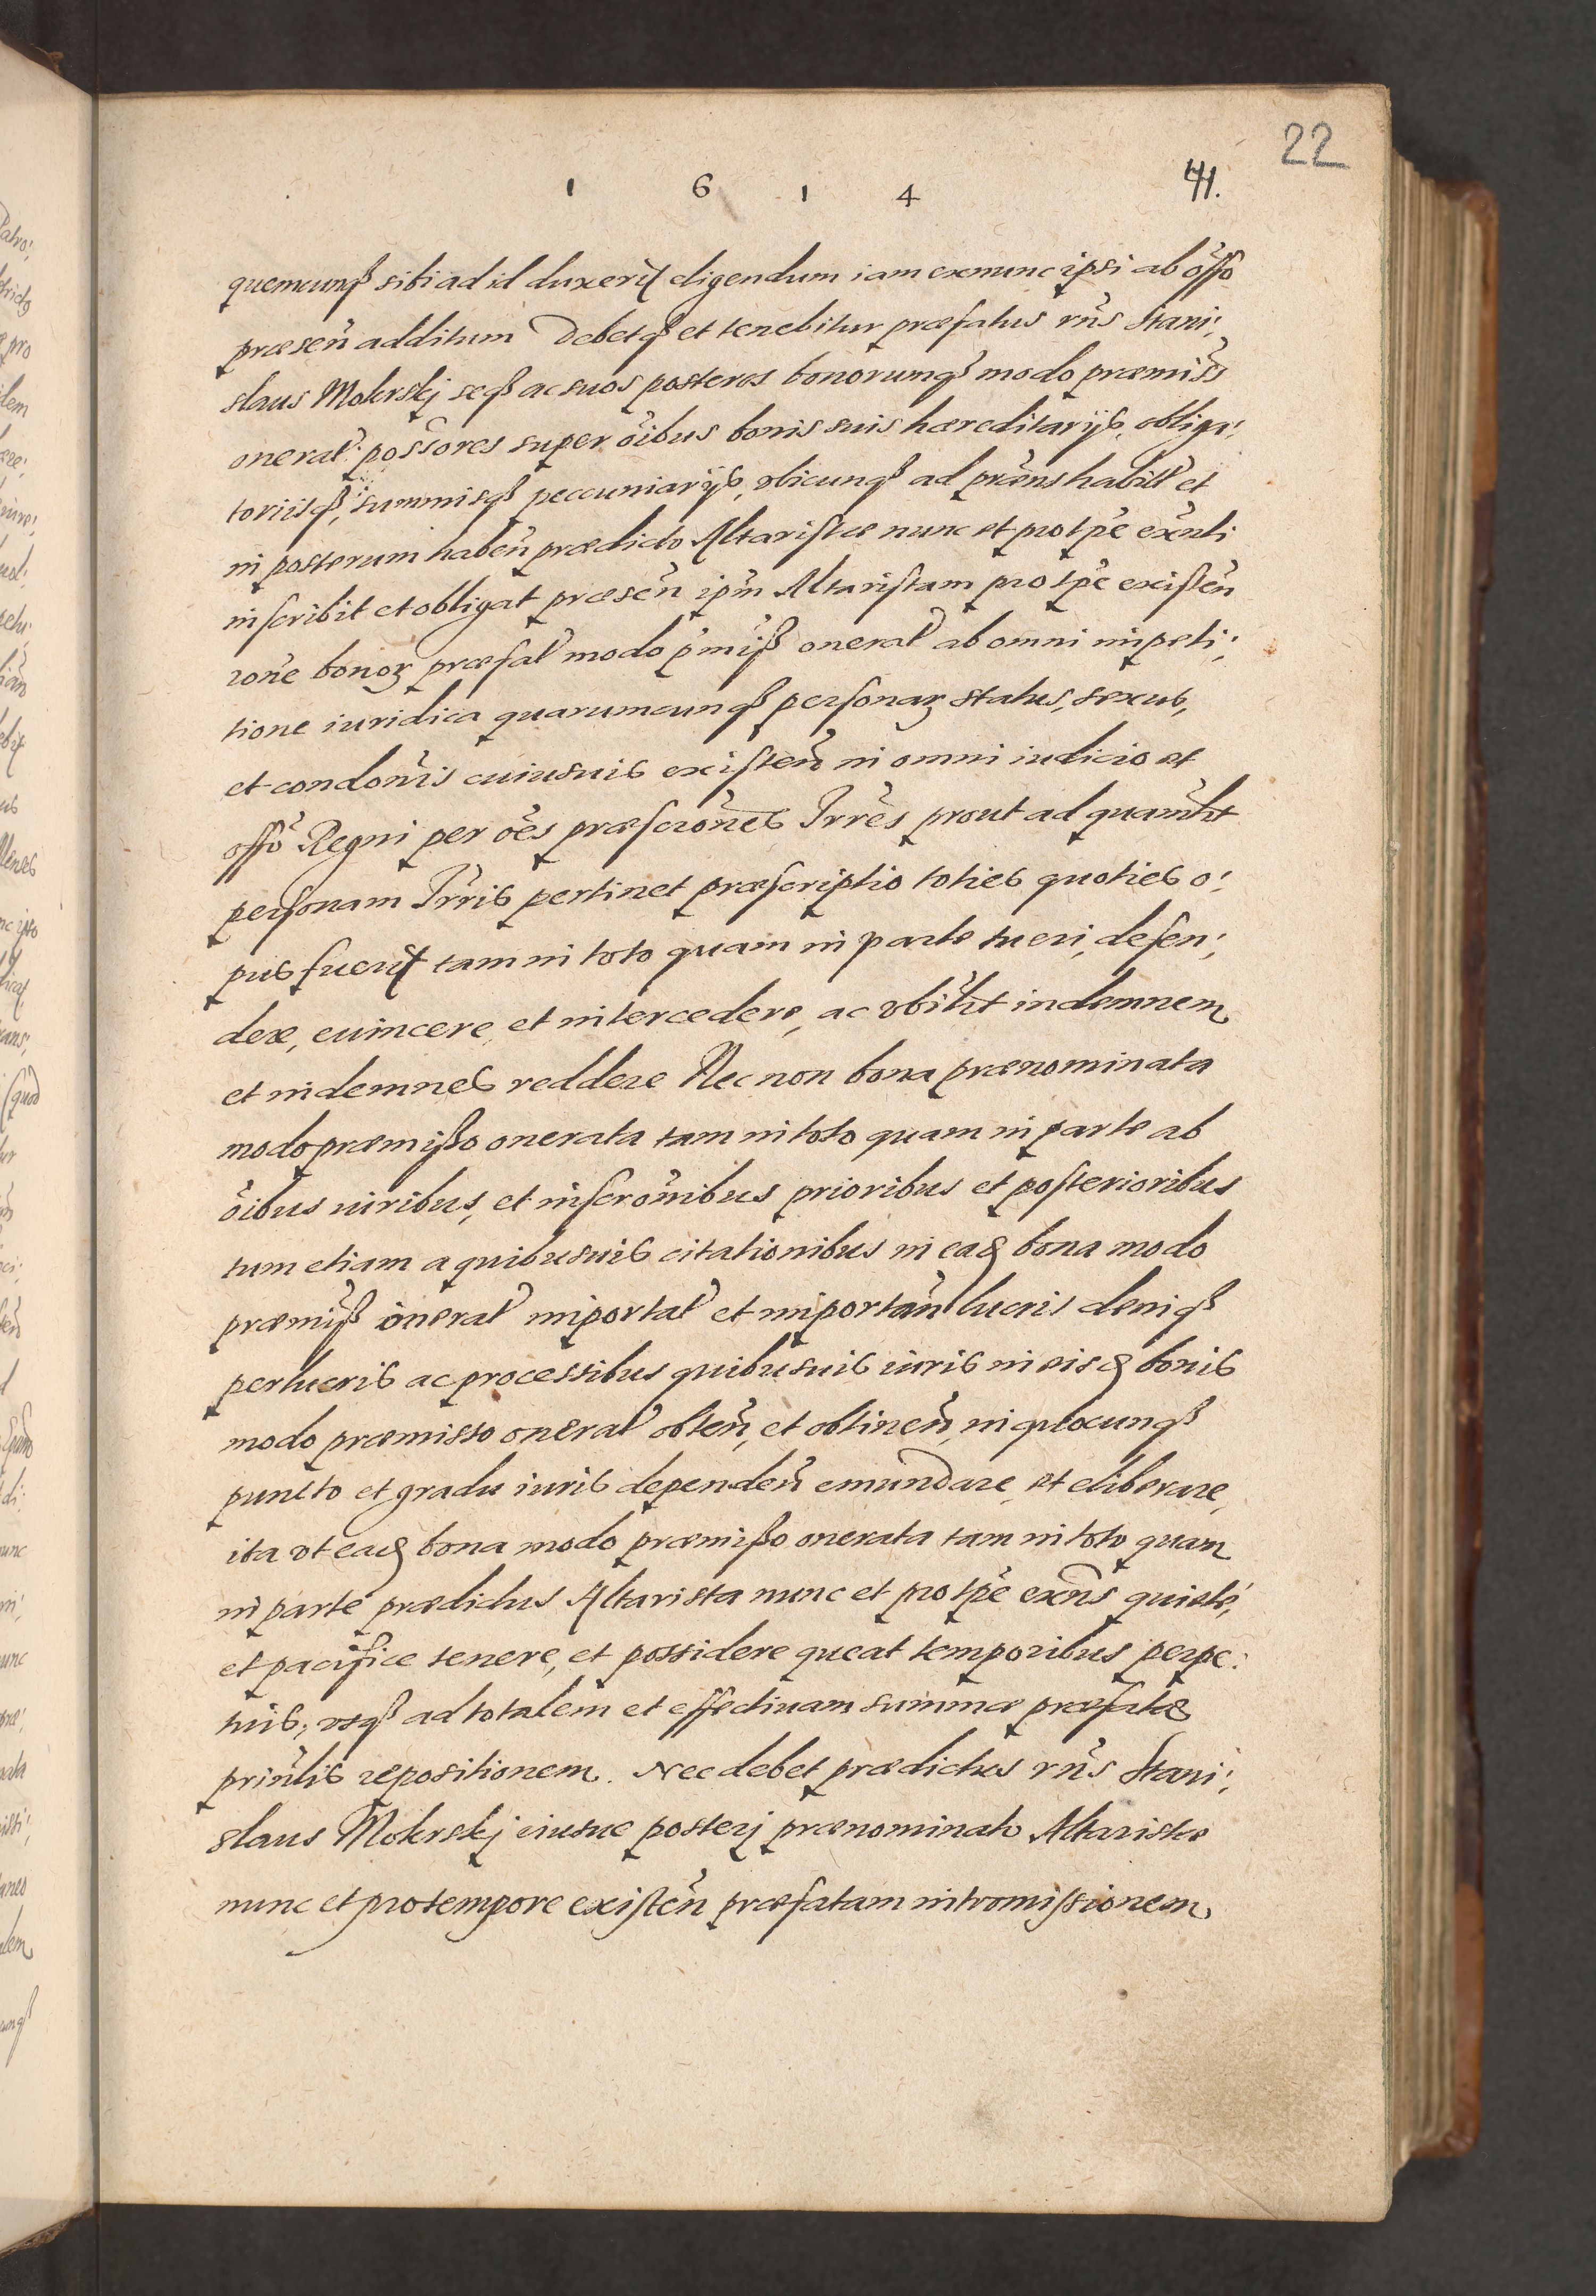 22
1 6 1 4 41.
quemcunqꝫ sibi ad id duxerit eligendum iam exnunc ipsi ab offo
præsen additum Debetqꝫ et tenebitur præfatus rñs Stani,
slaus Mokrskj seqꝫ ac suos posteros bonorumqꝫ modo præmiss
onerat. possores super õibus bonis suis hæreditarijs, obliga,
torijsqꝫ, summisqꝫ peccuniarijs, vbicunqꝫ ad præns habit et
in posterum haben prædicto Altaristæ nunc et pro tpe exñti
inscribit et obligat præsen ipm Altaristam pro tpe existen
rone bonoꝝ præfat modo p̃miss onerat ab omni impeti,
tione iuridica quarumcunqꝫ personaꝝ status, sexus,
et condonis cuiusuis existen in omni iudicio et
offo Regni per oẽs præscrones Trrẽs prout ad quamlt
personam Trris pertinet præscriptio toties quoties o,
pus fuerit tam in toto quam in parte tueri, defen,
dere, euincere, et intercedere, ac vbilt indemnem
et indemnes reddere Nec non bona prænominata
modo præmisso onerata tam in toto quam in parte ab
õibus iuribus, et inscronibus prioribus et posterioribus
tum etiam a quibusuis citationibus in eadꝫ bona modo
præmiss onerat importat et importan lucris deniqꝫ
perlucris ac processibus quibusuis iuris in eisdꝫ bonis
modo præmisso onerat obten, et obtinen, in quocunqꝫ
puncto et gradu iuris dependen emundare, et eliberare,
ita vt eadꝫ bona modo præmisso onerata tam in toto quam
in parte prædictus Altarista nunc et pro tpe exñs quiete,
et pacifice tenere, et possidere queat temporibus perpe,
tuis, vsqꝫ ad totalem et effectiuam summæ præfatæ
prinlis repositionem. Nec debet prædictus rñs Stani,
slaus Mokrskj eiusue posterj prænominato Altaristæ
nunc et pro tempore existen præfatam intromissionem